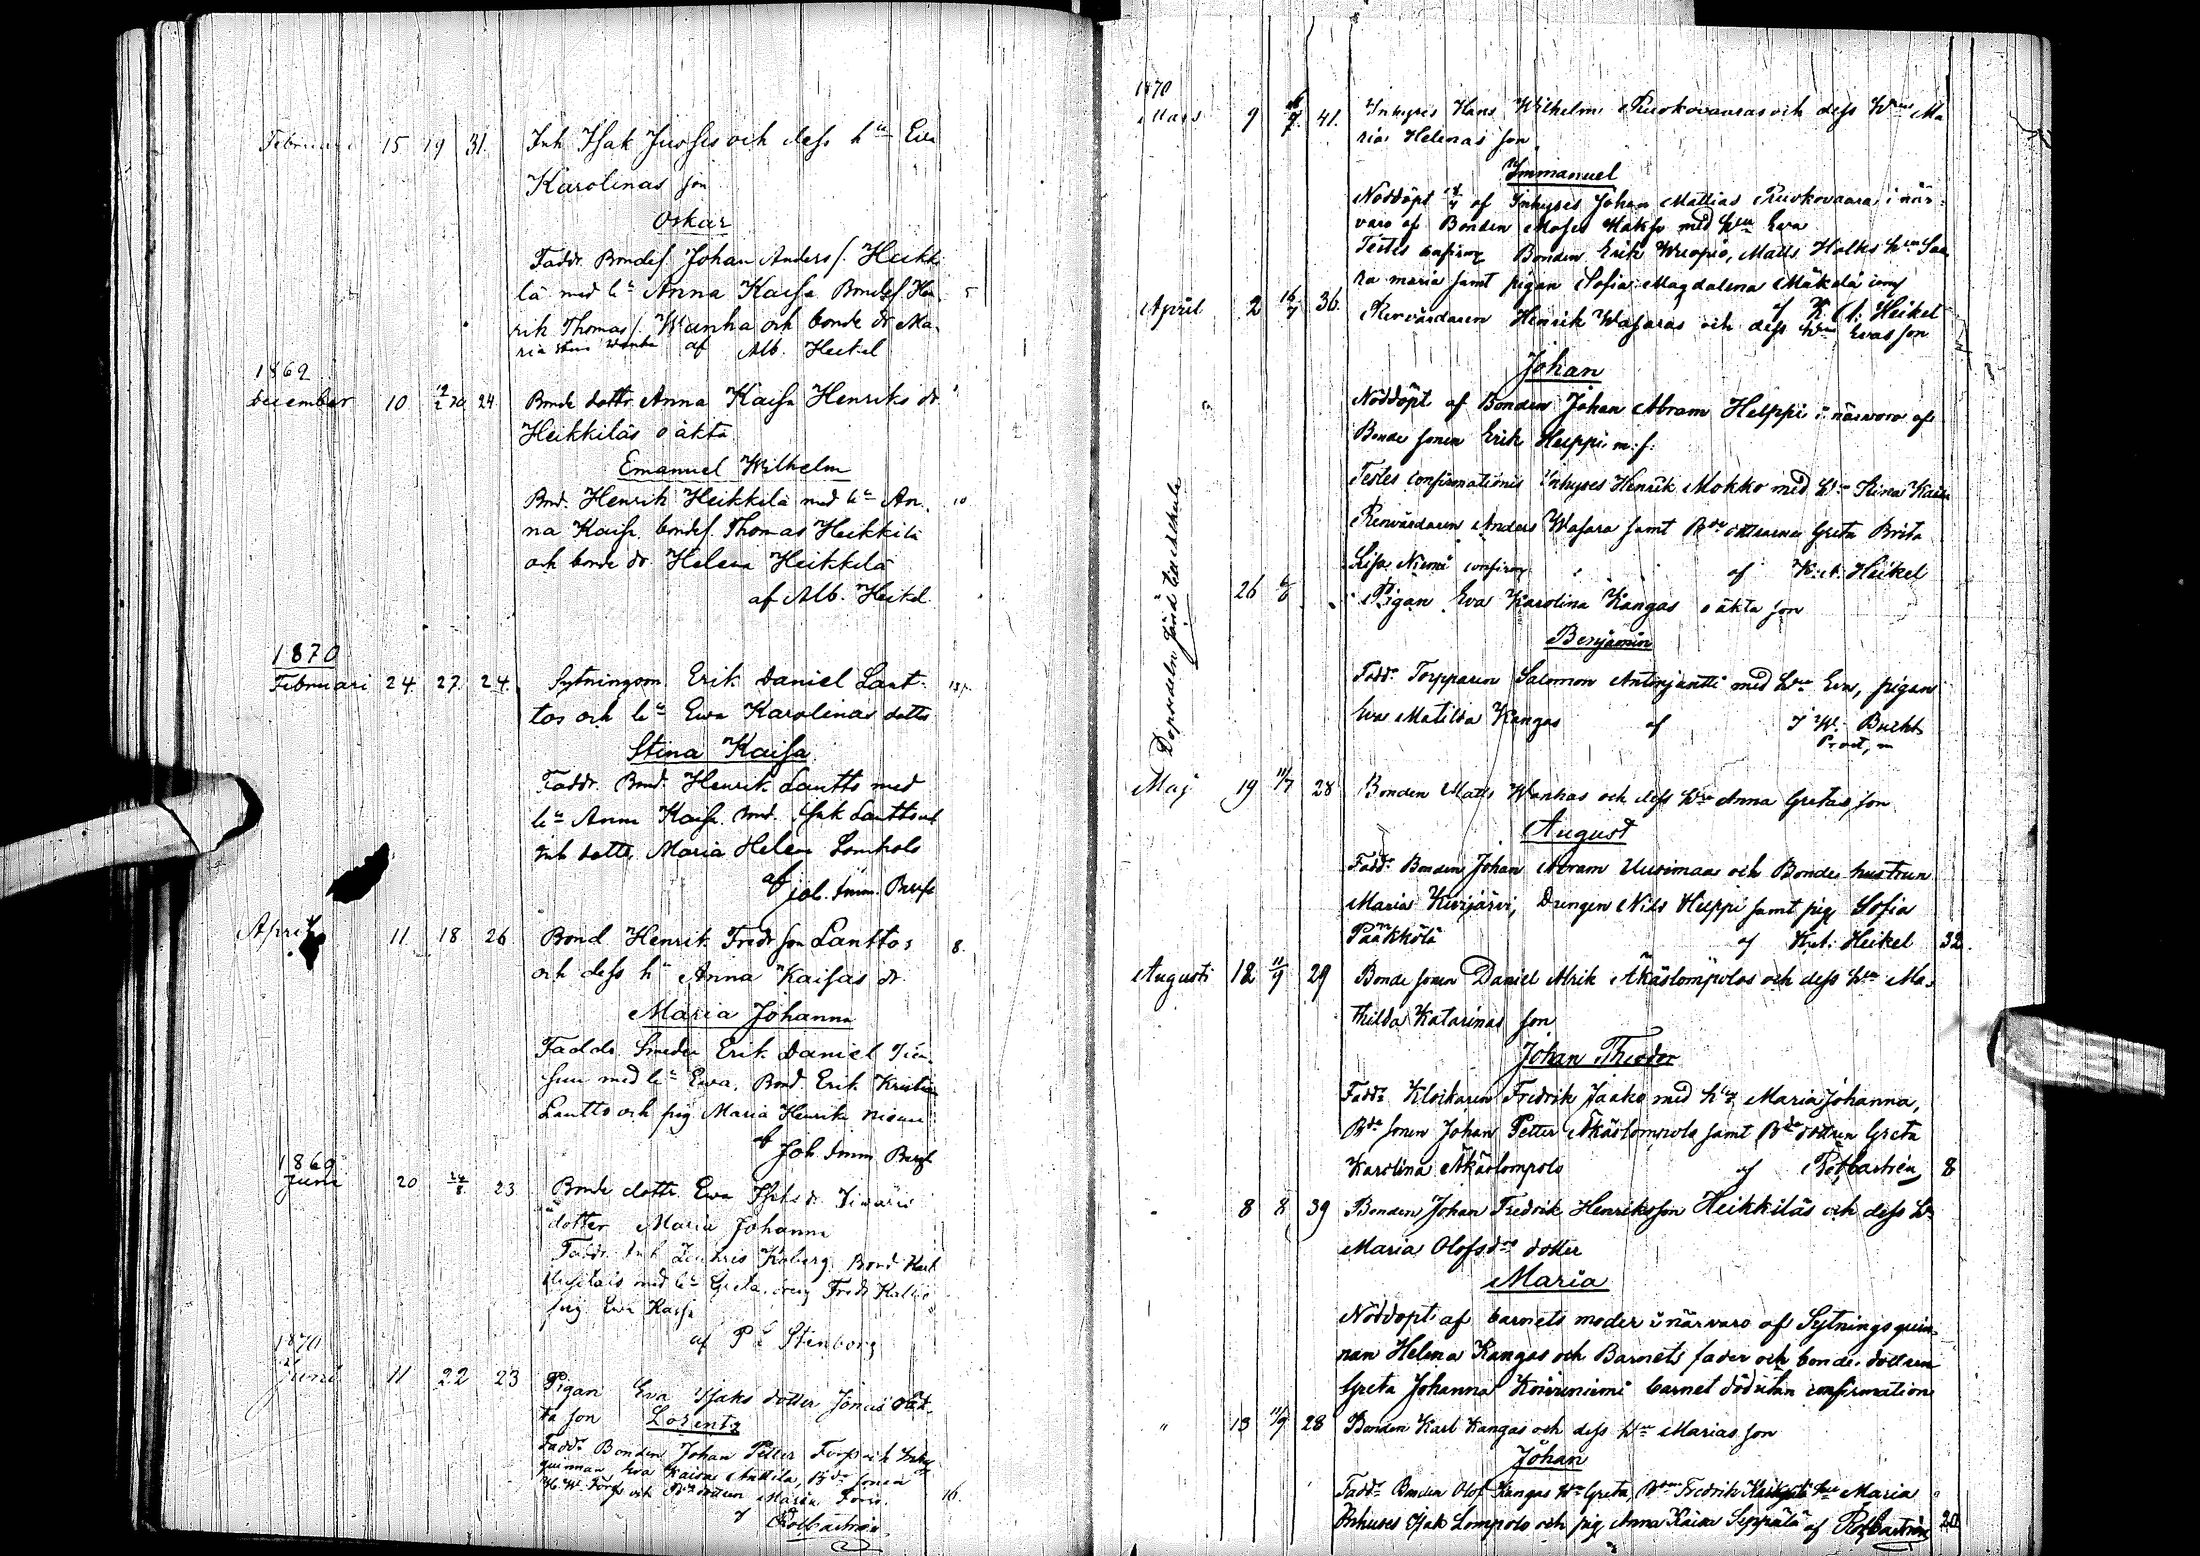 Februari 15 19 31. Inh. Isak Jussis och dess hu Eva
Karolinas son
Oskar
Faddr. Bondes. Johan Anders s. Heikki
lä med hu Anna Kaisa Bondes. Hen
rik Thomas s. Wanha och bonde dr Ma-
ria Wanha af Alb. Heikel
1869
December 10 12/2 70 24 Bonde dottr. Anna Kaisa Henriks dr
Heikkiläs oäkta
Emanuel Wilhelm
Bnd. Henrik Heikkilä med hu An- 10
na Kaisa, bondes. Thomas Heikkilä
och bonde dr Helena Heikkilä
af Alb. Heikel
1870
Februari 24 27. 24. Sytningsm. Erik Daniel Lant-
tos och hu Ewa Karolinas dotter
Stina Kaisa
Faddr. Bond. Henrik Lantto med
hu Anna Kaisa. Bond. Isak Lantto och
inh dotter Maria Helena Lomholo
af Joh. Imm. Bergh
April 11. 18 26 Bond Henrik Fredr son Lanttos 8.
och dess hu Anna Kaisas dr.
Maria Johanna
Faddr. Smeden Erik Daniel
med hu Ewa. Bond. Erik Kristian
Lantto och pig Maria Henrika
af Joh. Imm. Bergh
1869
Juni 20 24/8 23 Bonde dotter Ewa Isaks dr
dotter Maria Johanna
Faddr. Inh. Bond
med hu Greta, dreng Fredr Kallio
pig Ewa Kaisa
af P L Stenborg
1870
Juni 11 22 23 Pigan Eva Isaks dotter
ta son Lorentz
Faddr Bonden Johan Petter Forss och Inhy
quinnan Eva Kaisa Anttila, Bde sonen
och Bde dottren Maria Forss. 16.
af Rob Castrén
1870
Mars 9 41. Inhyses Hans Wilhelm Ruokovaaras och dess Hru Ma
rias Helenas son
Immanuel
Nöddöpt af Inhyses Johan Mattias Ruokovaara i när-
varo af Bonden Moses Hakso med hru Eva
Testes confirm Bonden Erik Wuopio, Matts Halks hru Saa
ra maria samt pigan Sofia Magdalena Mäkelä
af K. A. Heikel
April 2 36. Renvårdaren Henrik Wasaras och dess hru Evas son
Johan
Nöddöpt af Bonden Johan Abram Helppi i närvaro af
Bonde sonen Erik Helppi m: f:
Testes confirmationis Inhyses Henrik Mokko med Hru Stina Kaisa
Renvårdaren Anders Wasara samt Bde döttrarna Greta Brita
Lisa Niemi confirm af K. A. Heikel
26 Pigan Eva Karolina Kangas oäkta son
Benjamin
Fadd: Torpparen Salomon Antinjuntti med Hru Eva, pigan
Eva Matilda Kangas af J W. Bucht
Maj 19 11/7 28 Bonden Matts Wanhas och dess Hru Anna Gretas son
August
Fadd: Bonden Johan Abram Uusimaa och Bonde hustrun
Maria Kurjärvi, Drengen Nils Helppi samt pig Sofia
Pääkkölä af K. A. Heikel 32.
Augusti 12 11/9 29 Bonde sonen Daniel Alrik Äkäslompolos och dess hru Ma-
thilda Katarinas son
Johan Theodor
Fadd: Klockaren Fredrik Jaako med hru Maria Johanna,
Bde sonen Johan Petter Äkäslompolo samt Bde dottren Greta
Karolina Äkäslompolo af Rob Castrén 8
" 8 8 39 Bonden Johan Fredrik Henriksson Heikkiläs och dess Hru
Maria Olofsdrs dotter
Maria
Nöddöpt af barnets moder i närvaro af Sytningsquin-
nan Helena Kangas och Barnets fader och bonde dottren
Greta Johanna Koivuniemi barnet död utan confirmation
" 13 11/9 28 Bonden Karl Kangas och dess Hru Marias son
Johan
Fadd: Bonden Olof Kangas Hru Greta, Fredrik Hru Maria
Inhuses Isak Lompolo och pig Anna Kaisa Seppälä af Rob Castrén 20